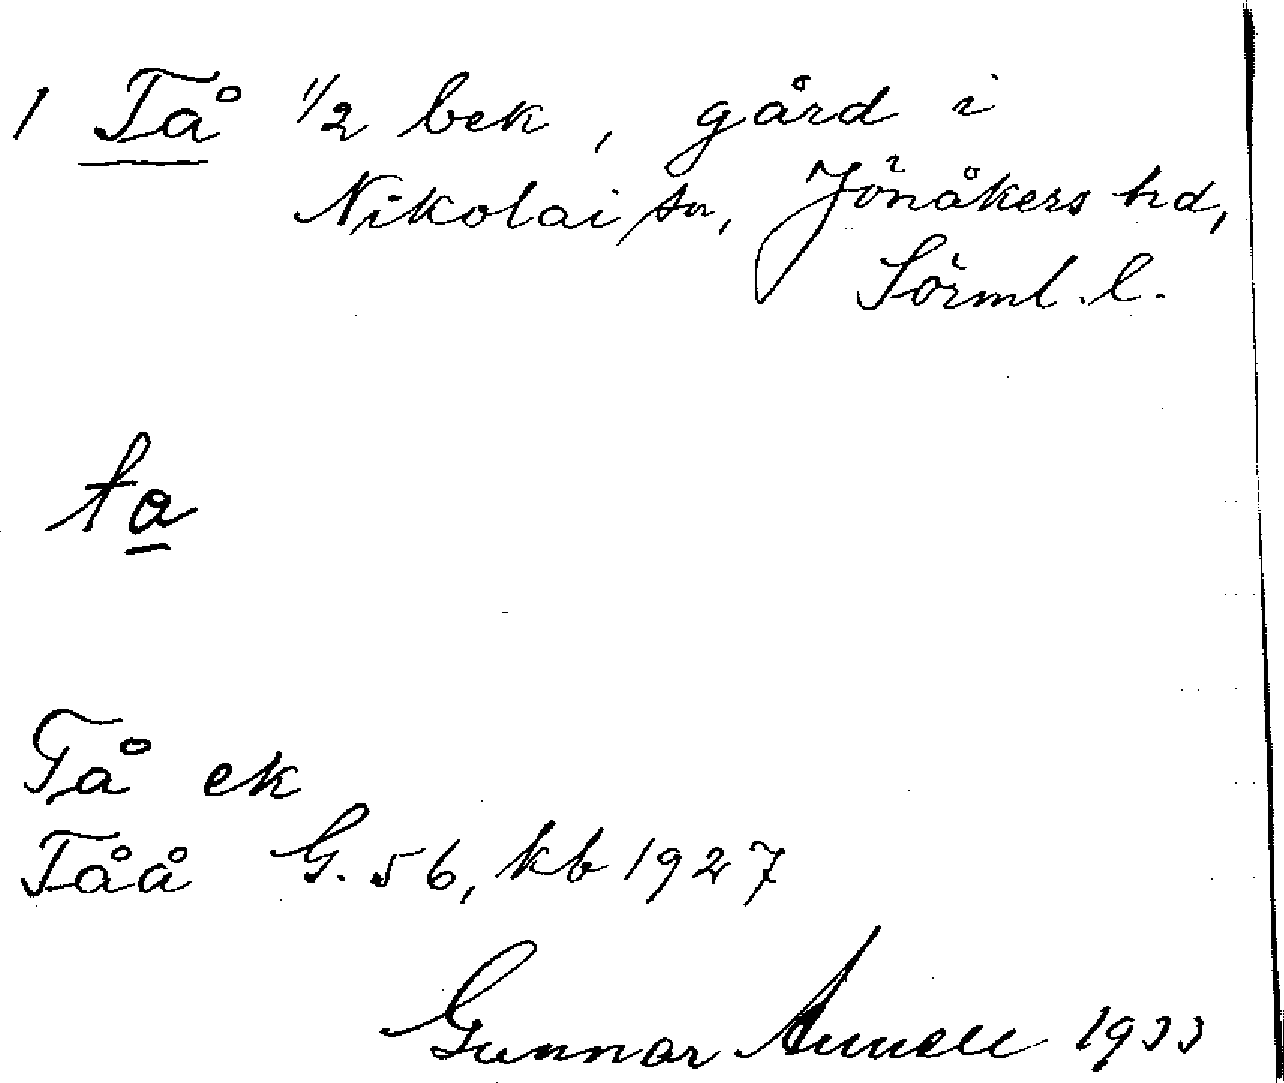 1 Tå 1/2 bek, gård i
Nikolai sn, Jönåkers hd,
Sörml. l.
ta
Tå ek
Tåå G. 56, kb 1927
Gunnar 1933